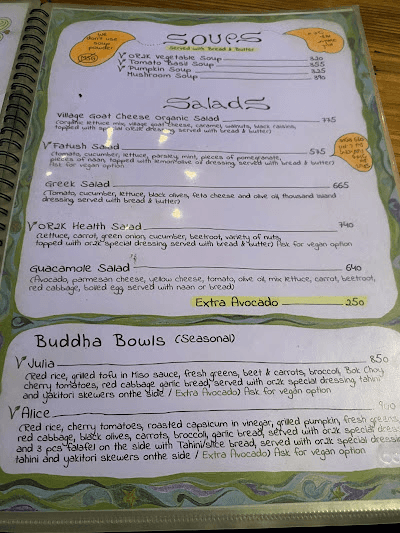 We don't use soup powder
SOUPS
Served with Bread & Butter
V OR2K Vegetable Soup 320
V Tomato Basil Soup 355
V Pumpkin Soup 335
Mushroom Soup
Salads
Village Goat Cheese Organic Salad 775
(organic lettuce mix, village goat cheese, caramel walnuts, black raisins,
topped with special or2k dressing, served with bread & butter)
V Fatush Salad 575
(tomato, cucumber, lettuce, parsley, mint, pieces of pomegranate,
pieces of naan, topped with lemon/olive dressing, served with bread & butter)
Ask for vegan option
Greek Salad 665
(Tomato, cucumber, lettuce, black olives, feta cheese and olive oil, thousand island
dressing, served with bread & butter)
V OR2K Health Salad 740
(Lettuce, carrot, green onion, cucumber, beetroot, variety of nuts,
topped with or2k special dressing, served with bread & butter) Ask for vegan option
Guacamole Salad 640
(Avocado, parmesan cheese, yellow cheese, tomato, olive oil, mix lettuce, carrot, beetroot,
red cabbage, boiled egg, served with naan or bread)
Extra Avocado 250
Buddha Bowls (Seasonal)
V Julia 850
(Red rice, grilled tofu in Miso sauce, fresh greens, beet & carrots, broccoli, Bok Choy,
cherry tomatoes, red cabbage garlic bread, served with or2k special dressing, tahini
and yakitori skewers onthe side / Extra Avocado) Ask for vegan option
V Alice 900
(Red rice, cherry tomatoes, roasted capsicum in vinegar, grilled pumpkin, fresh greens,
red cabbage, black olives, carrots, broccoli, garlic bread, served with or2k special dressi
and 3 pcs falafel on the side with Tahini/slice bread, served with or2k special dressin
tahini and yakitori skewers onthe side / Extra Avocado) Ask for vegan option